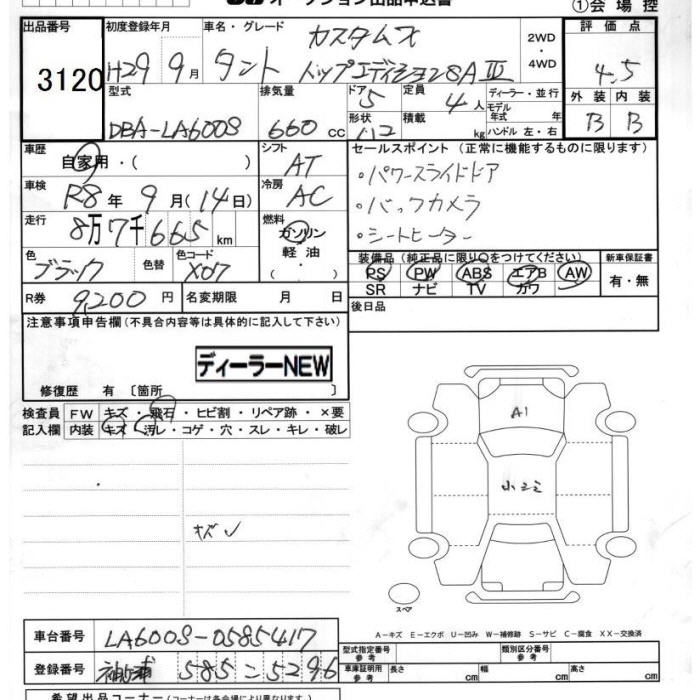 オークション出品申込書
①会場控
出品番号
3120
初度登録年月
H29 9月
車名・グレード
カスタムX
タント トップエディションSAⅢ
2WD
・
4WD
評価点
4.5
外装 内装
B B
型式
DBA-LA600S
排気量
660 cc
ドア
5
定員
4人
形状
積載
kg
ディーラー・並行
モデル
年式 年
ハンドル 左・右
車歴
自家用・( )
シフト
AT
車検
R8年 9月(14日)
冷房
AC
走行
8万7千665km
燃料
ガソリン
軽油
・( )
色
ブラック
色替
色コード
X07
R券
9,200円
名変期限 月 日
セールスポイント(正常に機能するものに限ります)
・パワースライドドア
・バックカメラ
・シートヒーター
装備品(純正品に限り○をつけてください)
PS PW ABS エアB AW
SR ナビ TV カワ
新車保証書
有・無
後日品
注意事項申告欄(不具合内容等は具体的に記入して下さい)
ディーラーNEW
修復歴 有〔箇所 〕
検査員
記入欄
FW キズ・飛石・ヒビ割・リペア跡・×要
内装 キズ・汚レ・コゲ・穴・スレ・キレ・破レ
キズ
A1
スペア
A-キズ E-エクボ U-凹み W-補修跡 S-サビ C-腐食 XX-交換済
車台番号
LA600S-0585417
登録番号
585 こ 5296
型式指定番号
参考
類別区分番号
参考
車庫証明用
参考
長さ cm
幅 cm
高さ cm
希望出品コーナー(コーナーは各会場により異なります)